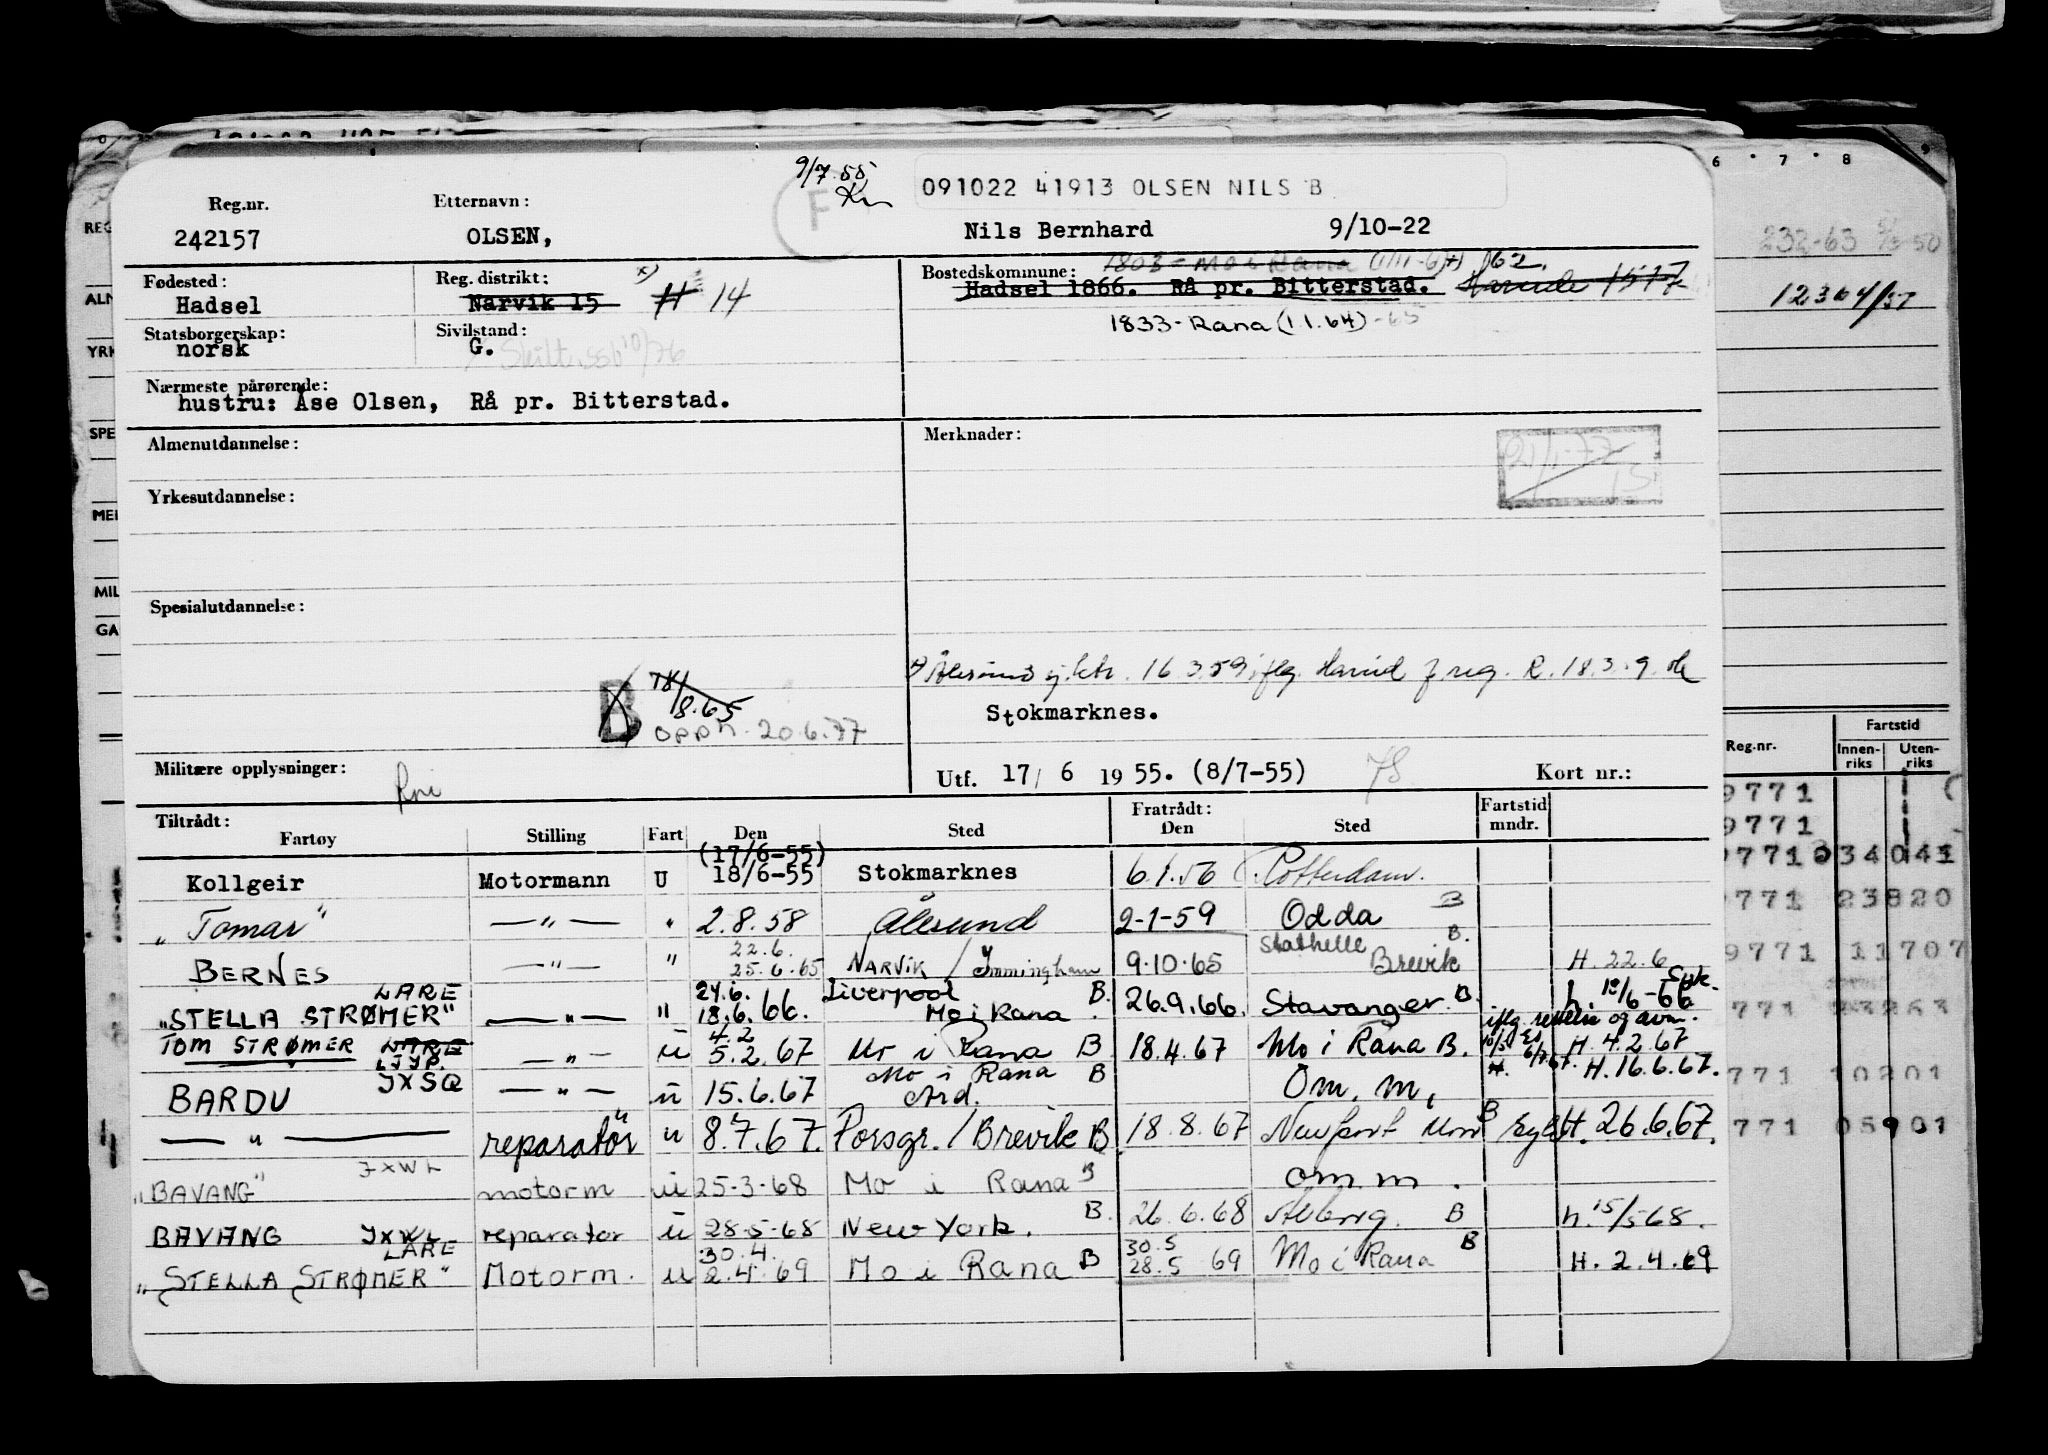 9/7-55 091022 41913 OLSEN NILS B
F
Reg.nr. Etternavn:
242157 OLSEN, Nils Bernhard 9/10-22
Fødested: Reg. distrikt: Bostedskommune: 1803 - Mo i Rana 62.
Hadsel Narvik 15 H 14 Hadsel 1866. Rå pr. Bitterstad. Hareide 1517
1833-Rana (1.1.64) -65
Statsborgerskap: Sivilstand:
norsk G.
Nærmeste pårørende:
hustru: Åse Olsen, Rå pr. Bitterstad.
Almenutdannelse: Merknader:
Yrkesutdannelse:
Spesialutdannelse:
16.3.59 iflg. reg. R. 18.3.
B 18/8.65
oppn. 20.6.77
Stokmarknes.
Militære opplysninger: Utf. 17/ 6 19 55. (8/7-55) Kort nr.:
Tiltrådt: Fratrådt: Fartstid
Fartøy Stilling Fart Den Sted Den Sted mndr.
(17/6-55)
Kollgeir Motormann U 18/6-55 Stokmarknes 6.1.56 Rotterdam.
"Tomar" — " — " 2.8.58 Ålesund 2-1-59 Odda B
22.6. Stathelle B.
BERNES — " — " 25.6.65 NARVIK / Immingham 9.10.65 Brevik H. 22.6
LARE 24.6. Liverpool B.
"STELLA STRØMER" — " — " 18.6.66. Mo i Rana. 26.9.66. Stavanger. B. h. 18/6-66
iflg.
TOM STRØMER LARE LJYP. — " — u 4.2 5.2.67 Mo i Rana B 18.4.67 Mo i Rana B. H. 4.2.67
BARDU JXSQ — " — u 15.6.67 Mo i Rana B Om. m, H. 16.6.67.
— " — reparatør u 8.7.67. Porsgr. / Brevik B 18.8.67 Newport B H. 26.6.67.
"BAVANG" JXWL motorm u 25-3-68 Mo i Rana B om m.
BAVANG JXWL reparatør u 28-5-68 New York. B. 26.6.68 B h. 15/5 68.
LARE 30.4. 30.5
"STELLA STRØMER" Motorm. u 2.4.69 Mo i Rana B 28.5 69 Mo i Rana B H. 2.4.69
6 7 8 9
232-63
12364/57
Fartstid
Reg.nr. Innen-riks Uten-riks
9771
9771
771 034041
771 23820
9771 11707
771 23263
771 10201
771 05901
REG
ALM
YRK
SPE
MER
MIL
GA